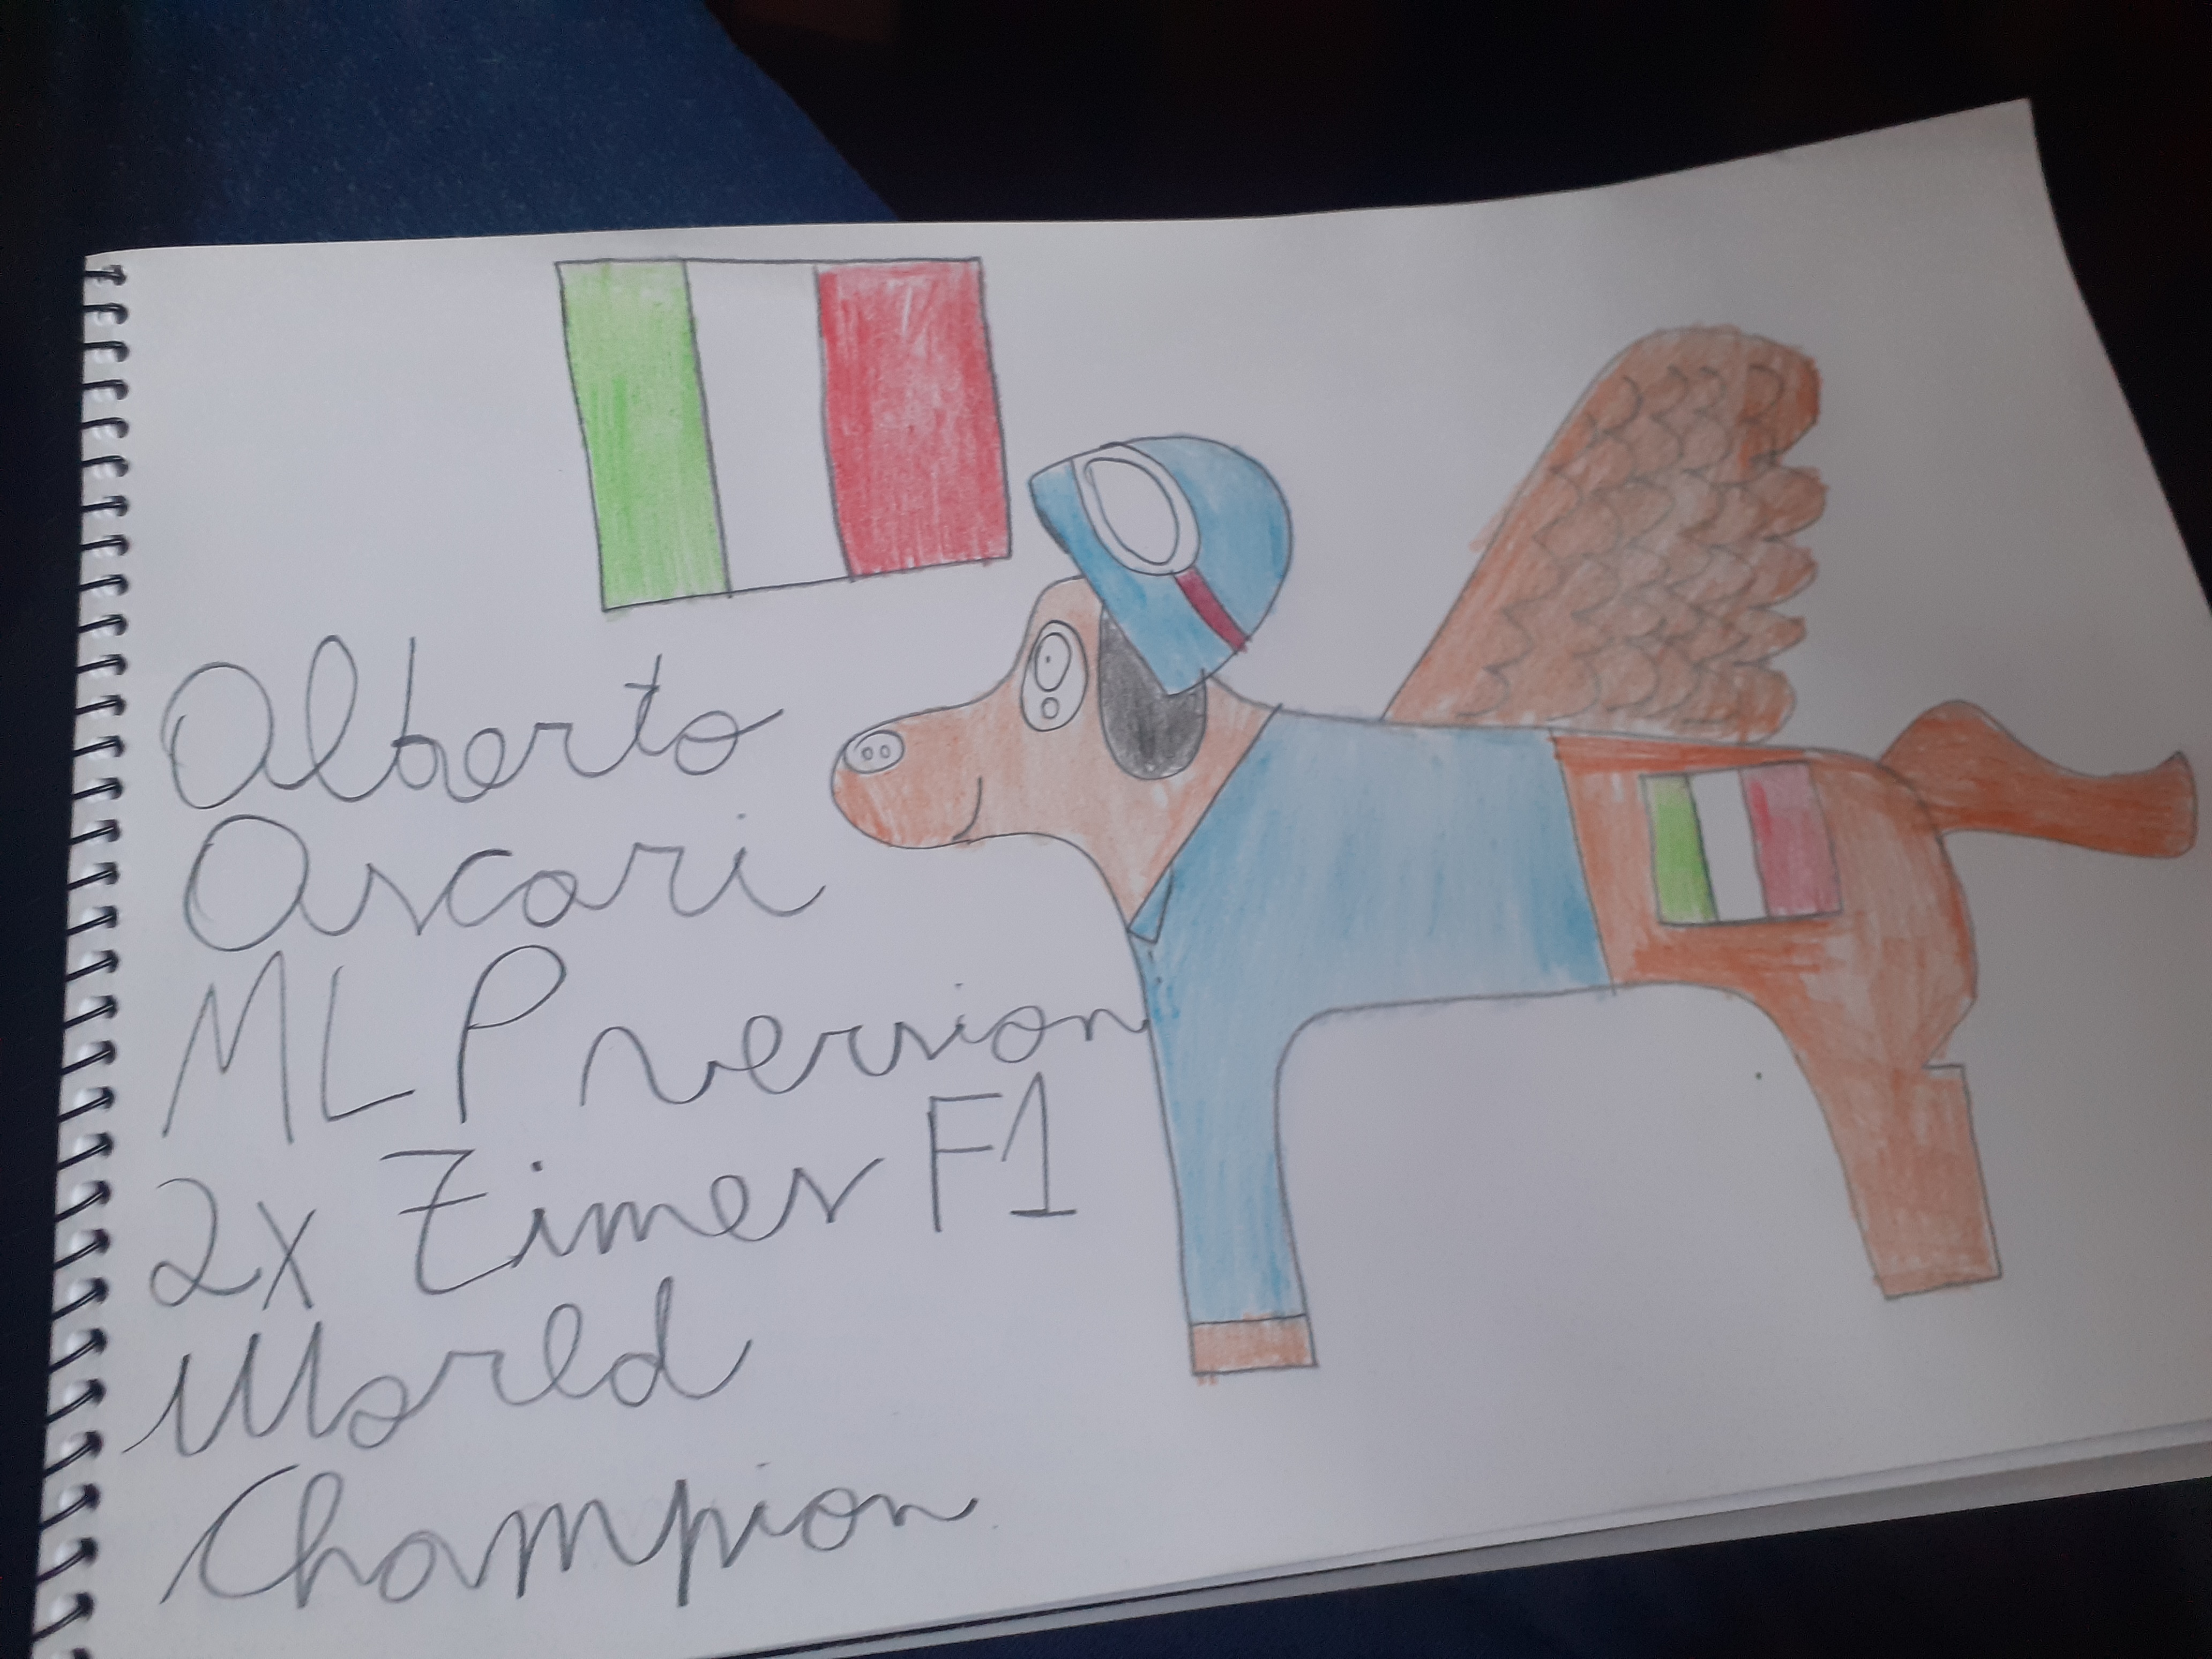 Alberto
Ascari
MLP version
2x Times F1
World
Champion